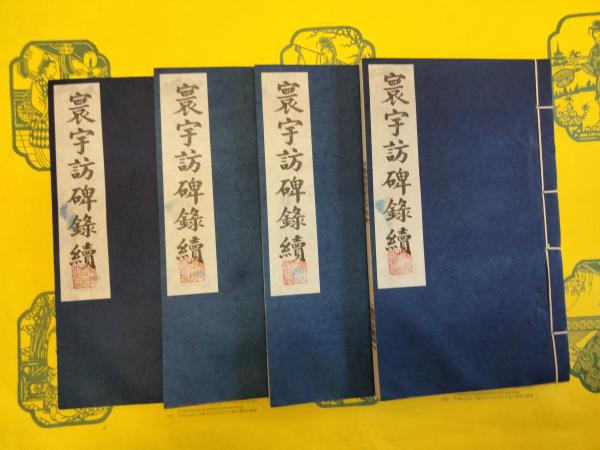 寰宇訪碑錄續
寰宇訪碑錄續
寰宇訪碑錄續
寰宇訪碑錄續